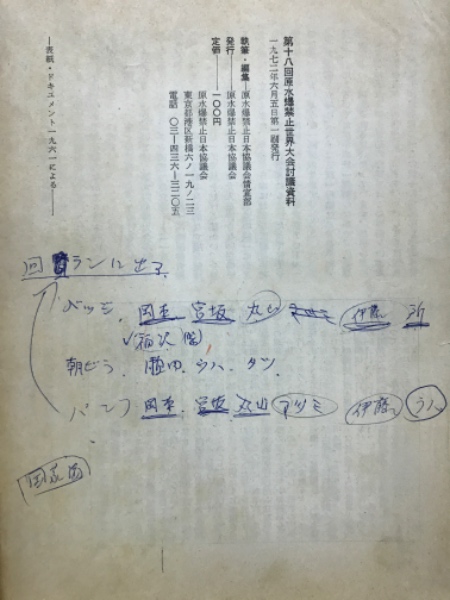 第十八回原水爆禁止世界大会討議資料
一九七二年六月五日第一刷発行
執筆・編集―原水爆禁止日本協議会情宣部
発行―原水爆禁止日本協議会
定価―一〇〇円
原水爆禁止日本協議会
東京都港区新橋六ノ一九ノ二三
電話 〇三―四三六―三二〇五
―表紙・ドキュメント一九六一による―
ランに出る
バッジ、岡本 宮坂 丸山 伊藤
稲沢
朝ビラ、
パンフ 岡本 宮坂 丸山 アツミ 伊藤